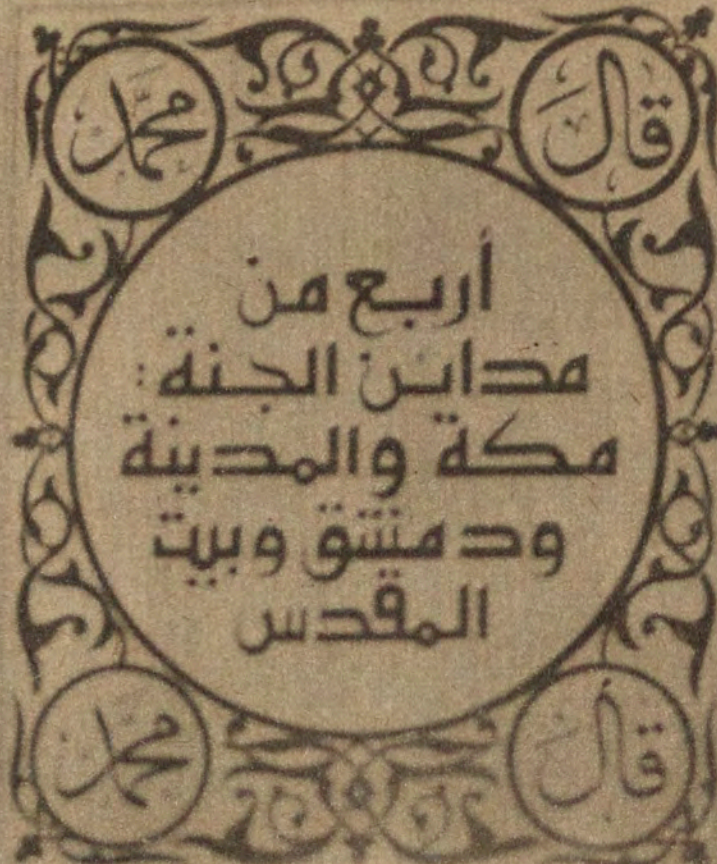 قَالَ
محمَّد
أربع من
مداين الجنة :
مكة والمدينة
ودمشق وبيت
المقدس
قَالَ
محمد